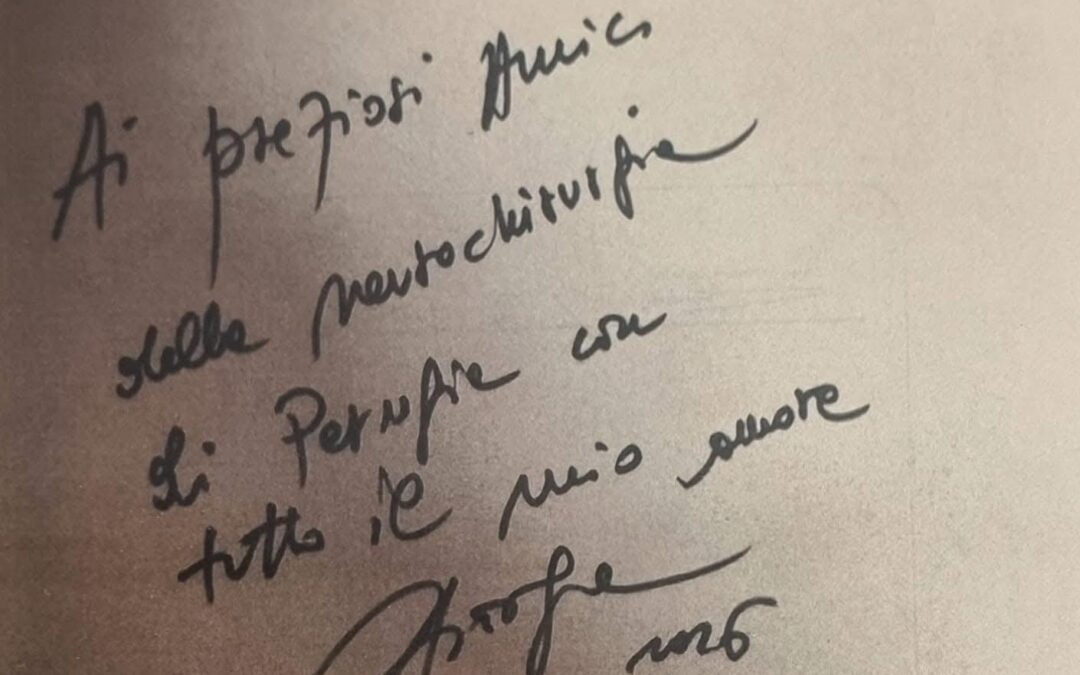 Ai preziosi Amici
della neurochirurgia
di Perugia con
tutto il mio amore
2026